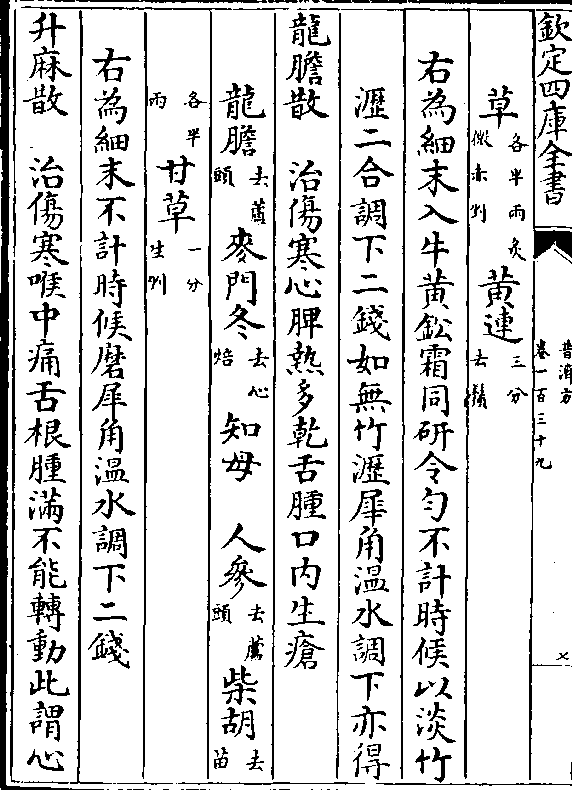 欽定四庫全書
普濟方
卷一百三十九
草各半兩炙微赤剉 黄連三分去鬚
右為細末入牛黄鈆霜同研令勻不計時候以淡竹
瀝二合調下二錢如無竹瀝犀角温水調下亦得
龍膽散 治傷寒心脾熱多乾舌腫口内生瘡
龍膽去蘆頭 麥門冬去心焙 知母 人參去蘆頭 柴胡去苗
各半兩 甘草一分生剉
右為細末不計時候磨犀角温水調下二錢
升麻散 治傷寒喉中痛舌根腫滿不能轉動此謂心